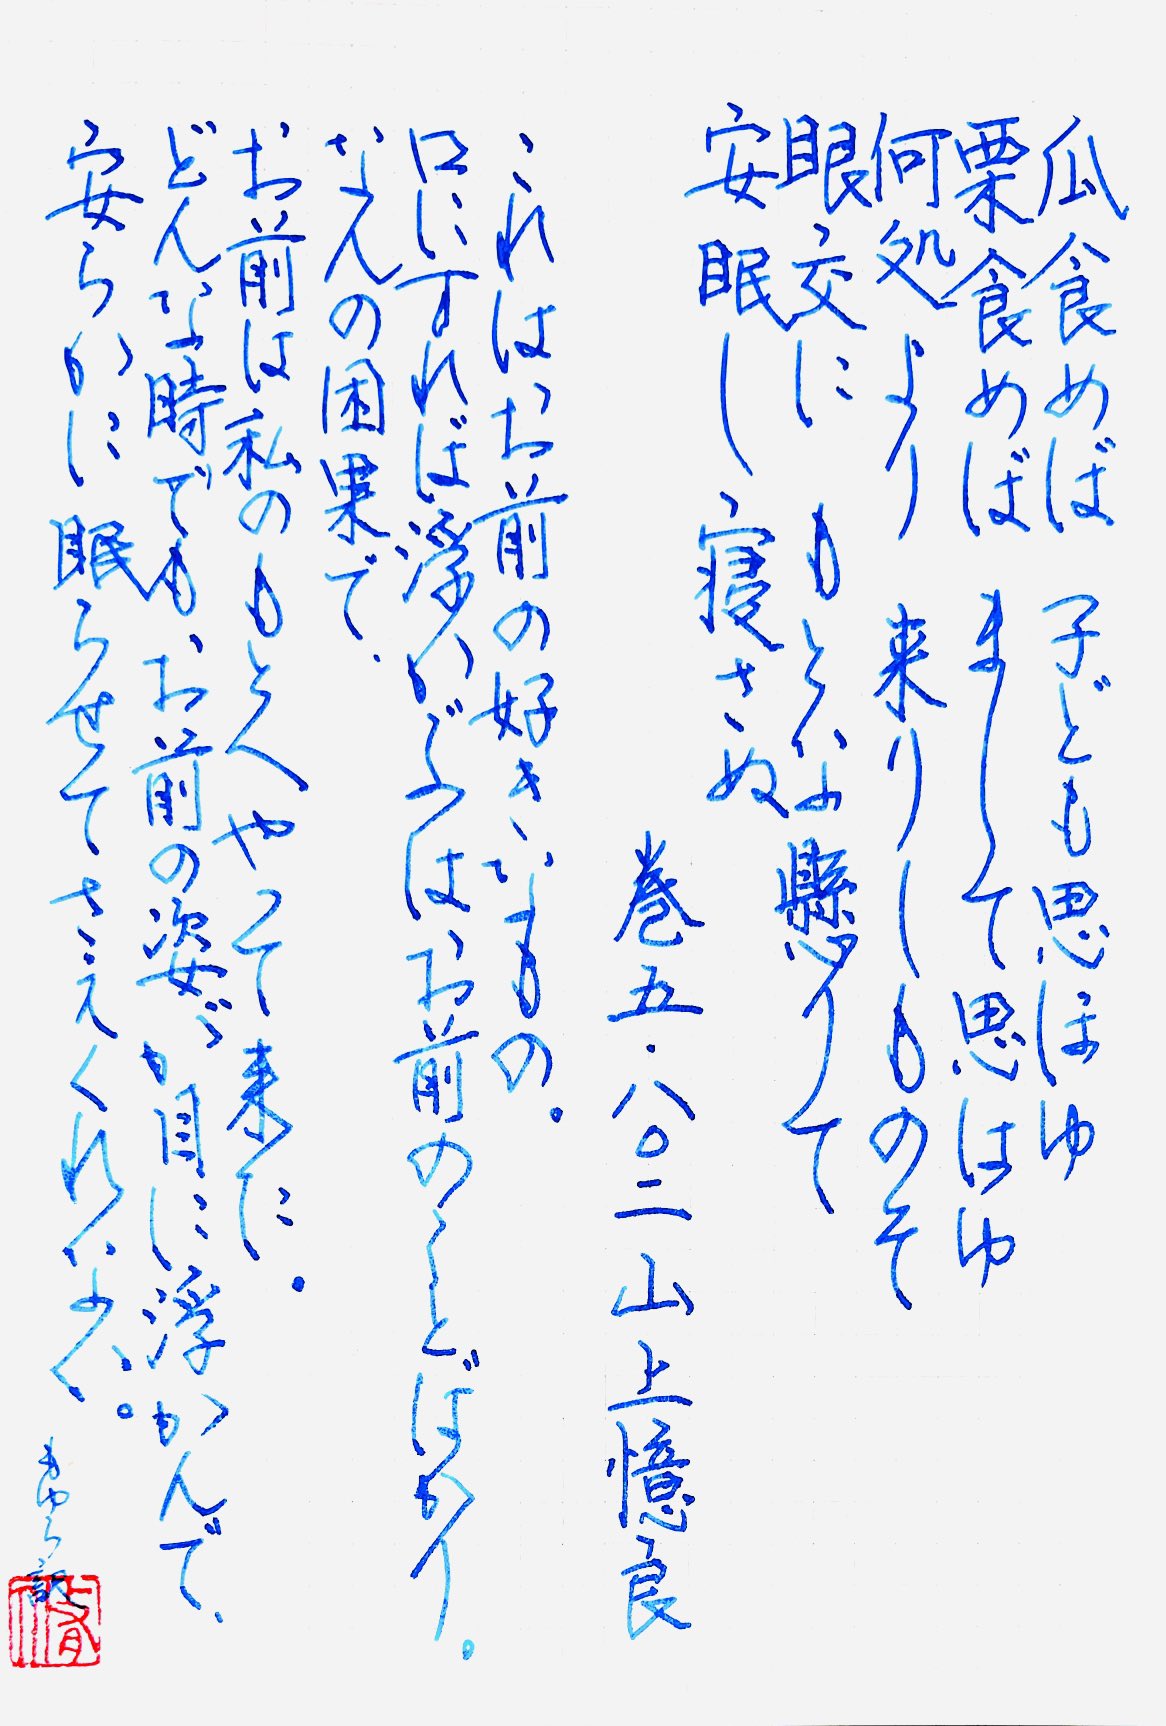 瓜食めば 子ども思ほゆ
栗食めば まして思はゆ
何処より 来りしものそ
眼交に もとな懸りて
安眠し 寝さぬ
巻五・八〇二 山上憶良
これはお前の好きなもの。
口にすれば浮かぶはお前のことばかり。
なんの困果で、
お前は私のもとへやって来た。
どんな時でもお前の姿が目に浮かんで、
安らかに眠らせてさえくれない。
きゆら記